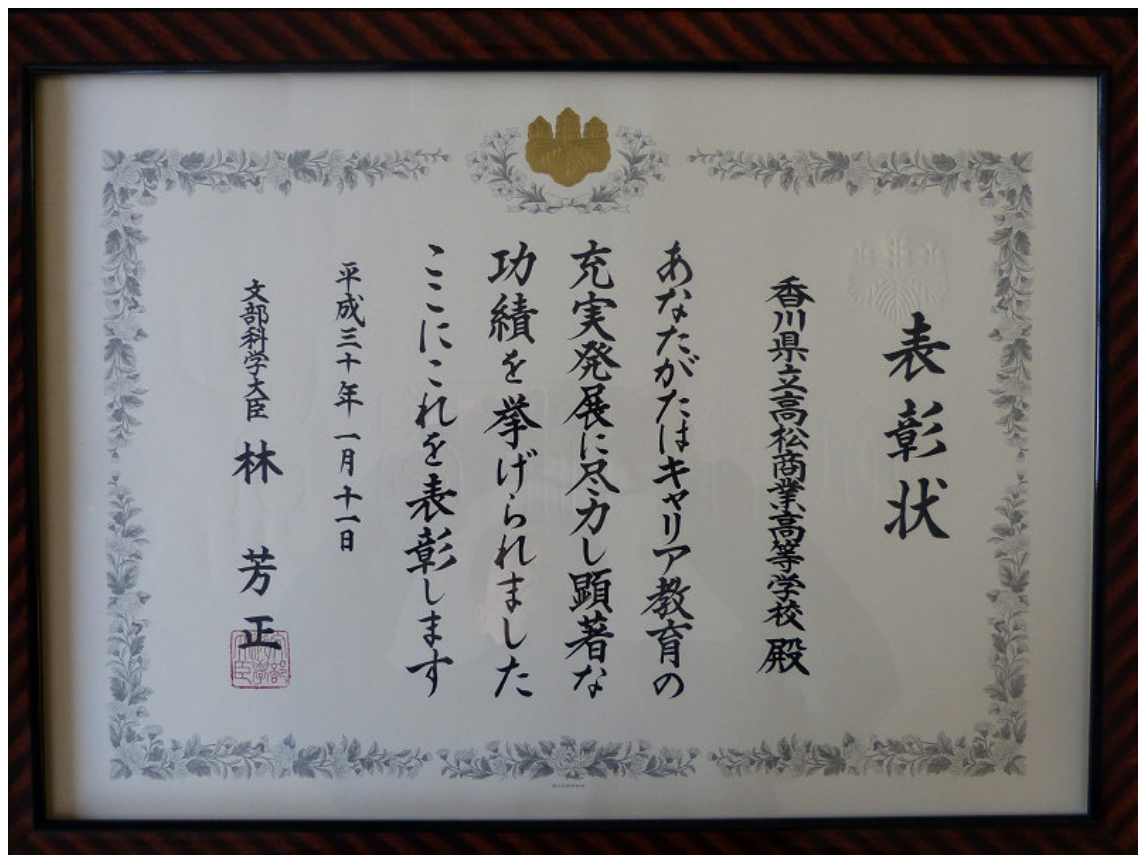 表彰状
香川県立高松商業高等学校 殿
あなたがたはキャリア教育の
充実発展に尽力し顕著な
功績を挙げられました
ここにこれを表彰します
平成三十年一月十一日
文部科学大臣 林 芳正